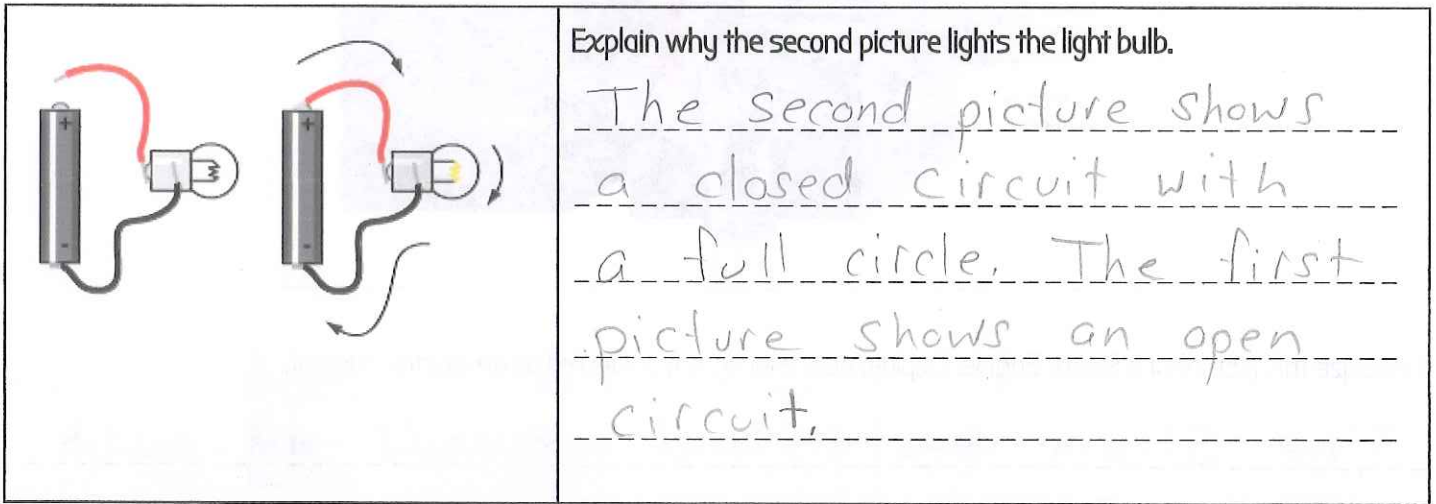 Explain why the second picture lights the light bulb.
The second picture shows
a closed circuit with
a full circle. The first
picture shows an open
circuit.
+
-
+
-